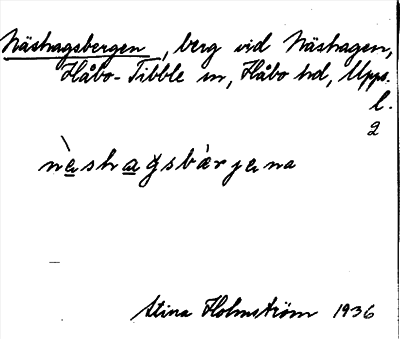 Näshagsbergen, berg vid Näshagen,
Håbo-Tibble sn, Håbo hd, Upps.
l.
2
nèshagsbàrjena
Stina Holmström 1936